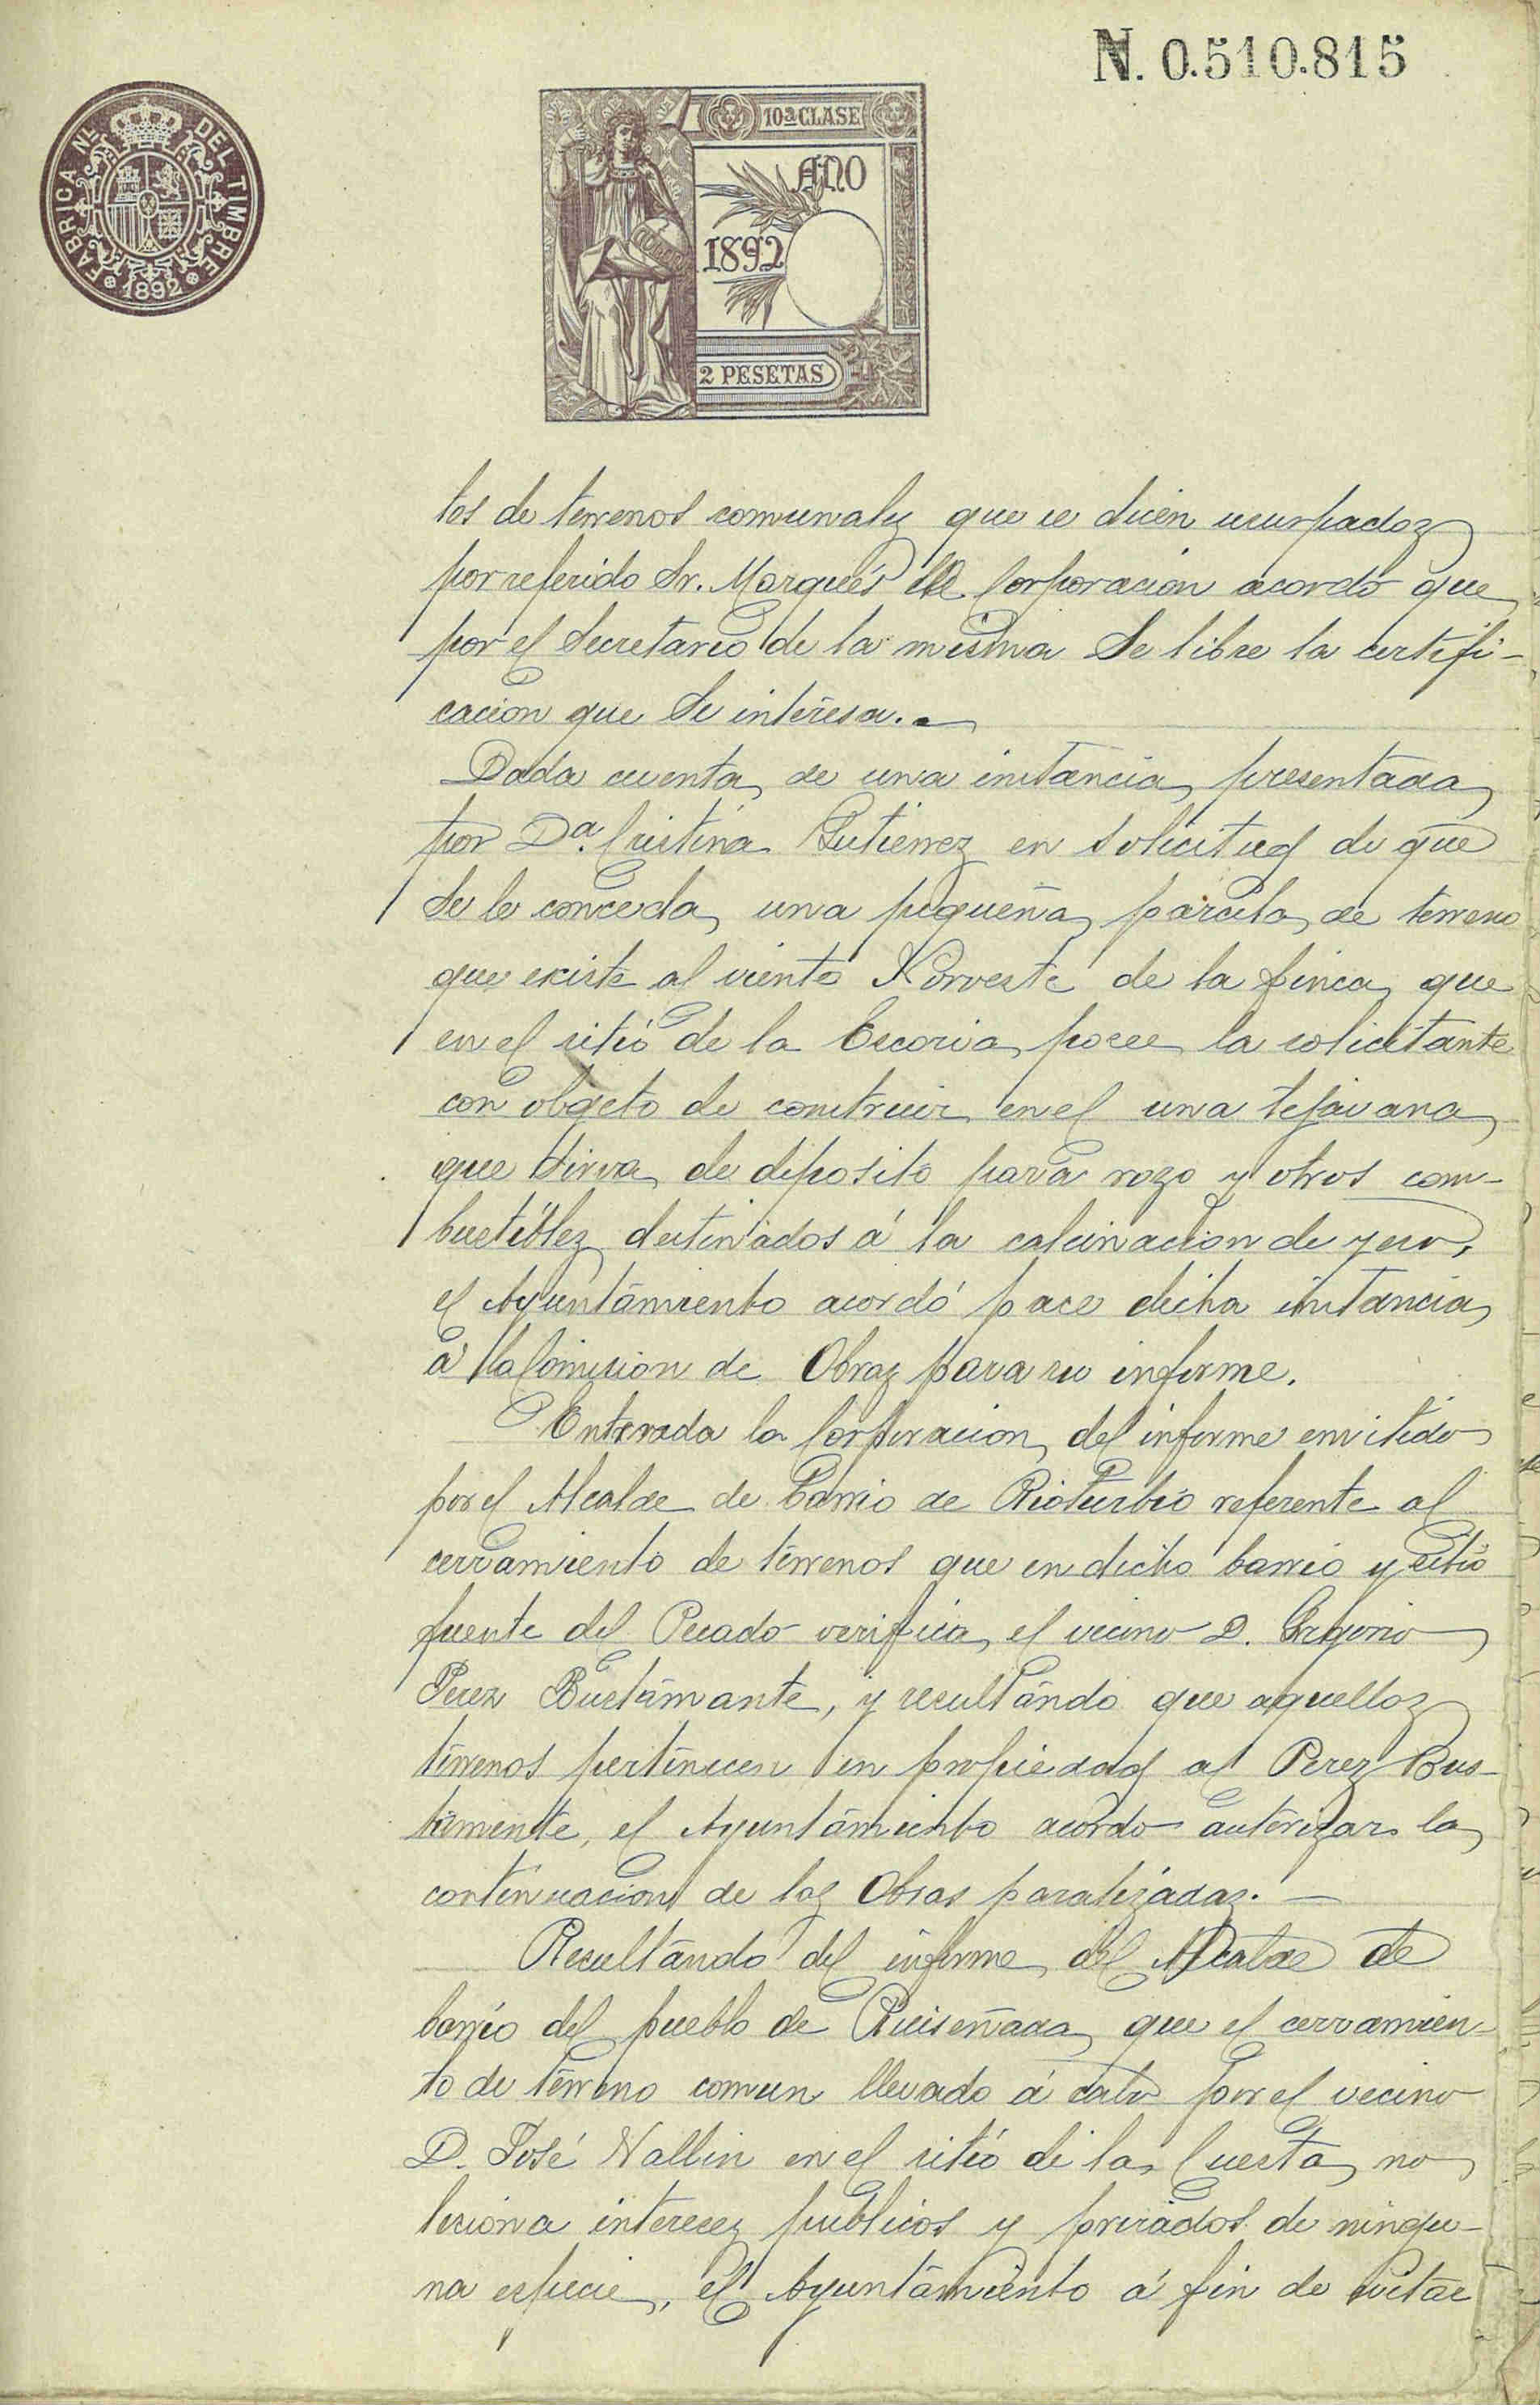 N. 0.510.815
FABRICA NL. DEL TIMBRE
1892
10ª CLASE
AÑO
1892
2 PESETAS
tos de terrenos comunales que se dicen usurpados
por referido Sr. Marqués la Corporacion acordó que
por el Secretario de la misma se libre la certifi-
cacion que se interesa.
Dada cuenta de una instancia presentada
por Dª. Cristina Gutierrez en solicitud de que
se le conceda una pequeña parcela de terreno
que existe al viento Norveste de la finca que
en el sitio de la Escoria posee la solicitante
con objeto de construir en el una tejavana
que sirva de deposito para rozo y otros com-
bustibles destinados á la calcinacion de yeso,
el Ayuntamiento acordó pase dicha instancia
á la Comision de Obras para su informe.
Enterada la Corporacion del informe emitido
por el Alcalde de barrio de Rioturbio referente al
cerramiento de terrenos que en dicho barrio y sitio
fuente del Pecado verifica el vecino D. Gregorio
Perez Bustamante, y resultando que aquellos
terrenos pertenecen en propiedad al Perez Bus-
tamente, el Ayuntamiento acordo autorizar la
continuacion de las Obras paralizadas.
Resultando del informe del Alcalde de
barrio del pueblo de Ruiseñada que el cerramien-
to de terreno comun llevado á cabo por el vecino
D. José Vallin en el sitio de la Cuesta no
lesiona intereses publicos y privados de ningu-
na especie, el Ayuntamiento á fin de evitar